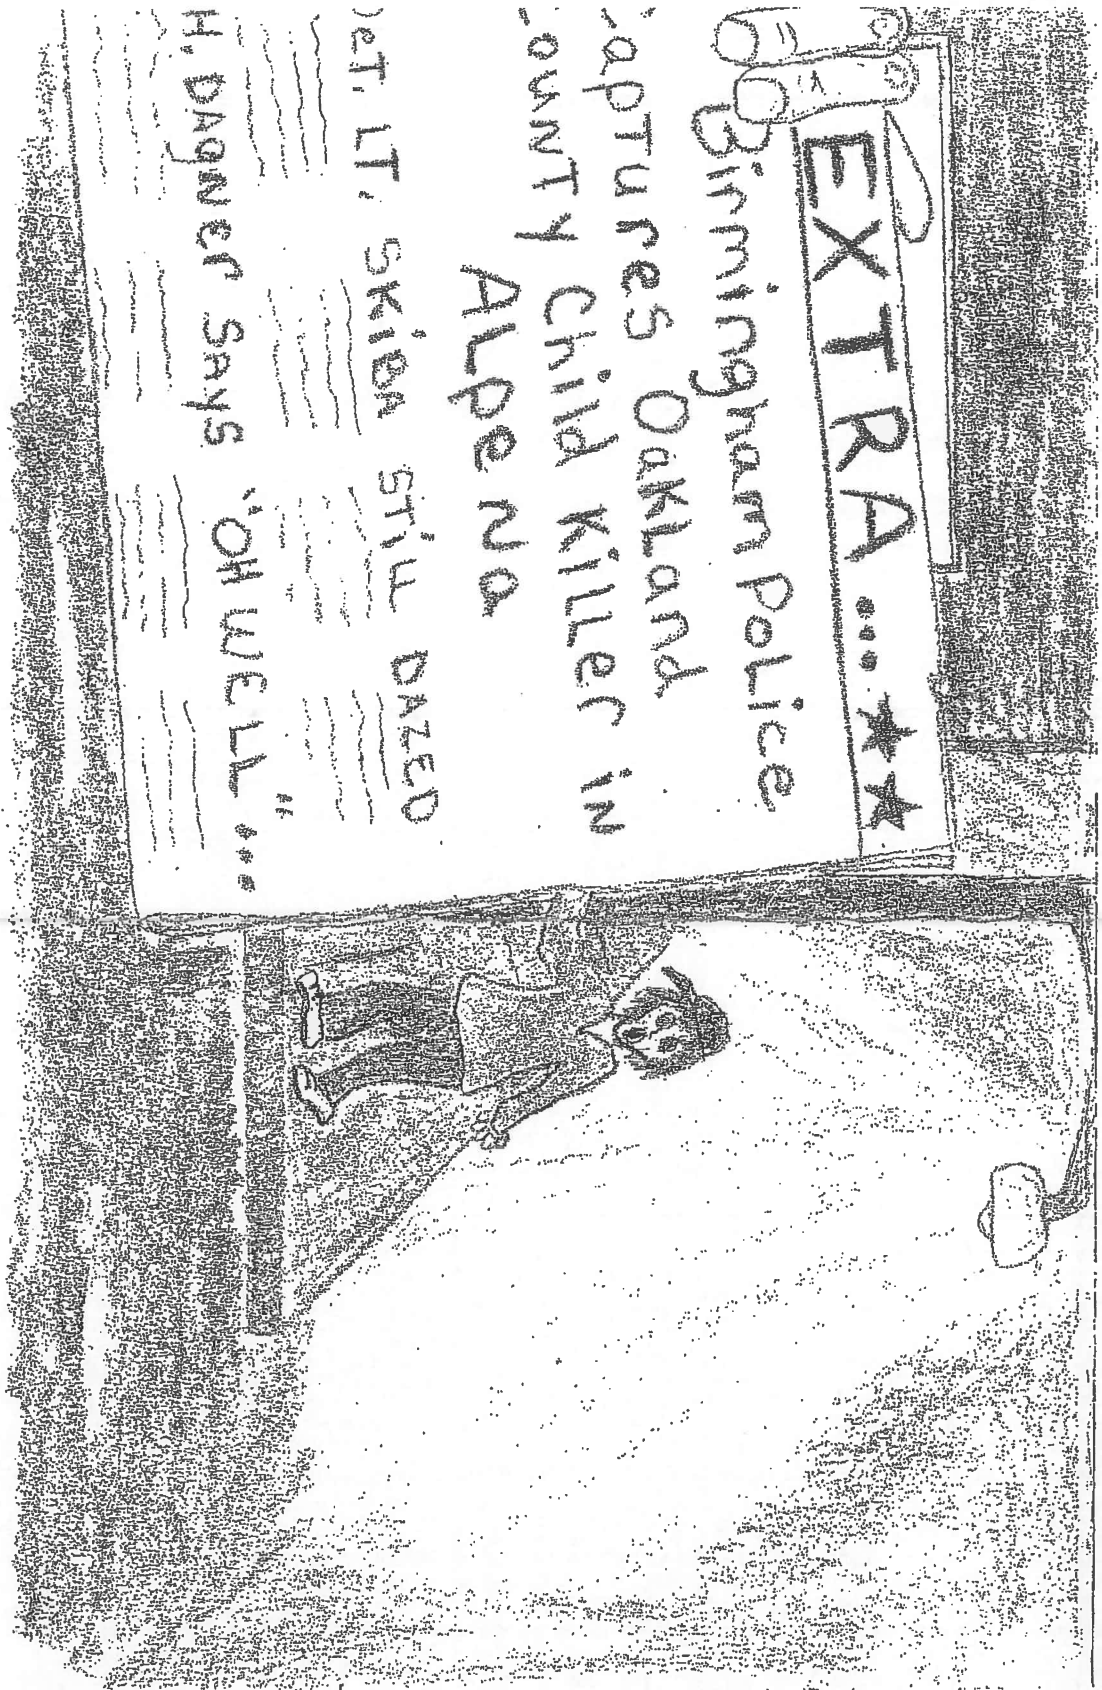 EXTRA...★★
Birmingham Police
Captures Oakland
County Child Killer iN
ALpeNa
DeT. LT. SKiBA STiLL DAZED
H. DAgNer SAyS "OH WELL"...